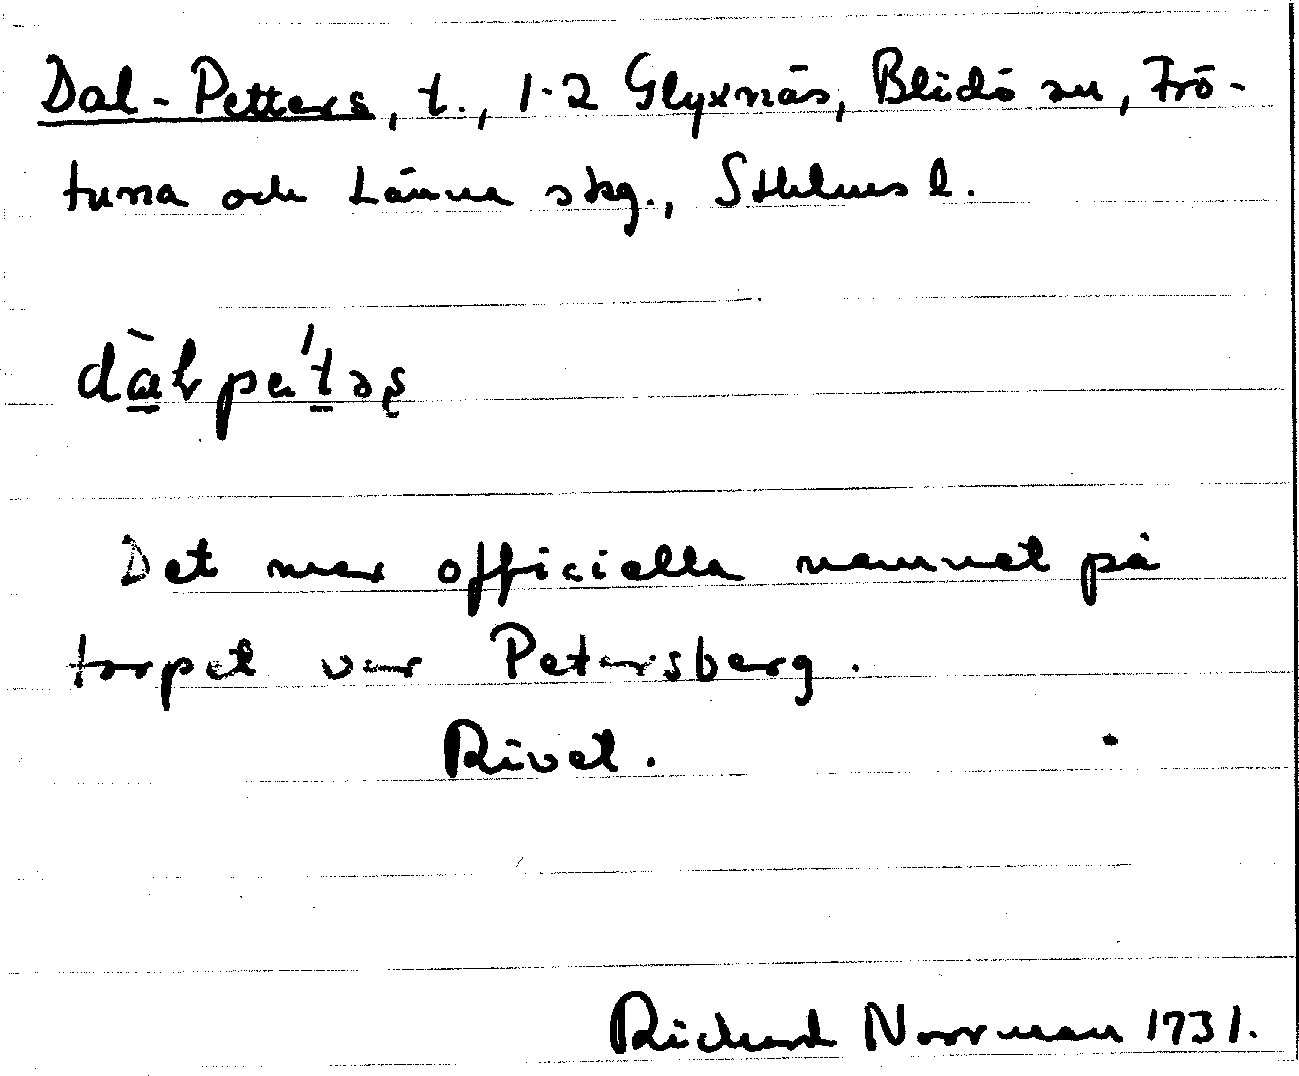 Dal-Petters, t., 1-2 Glyxnäs, Blidö sn, Frö-
tuna och Länna skg., Sthlms l.
dàlpetəs
Det mer officiella namnet på
torpet var Petersberg.
Rivet.
Richard Norrman 1931.